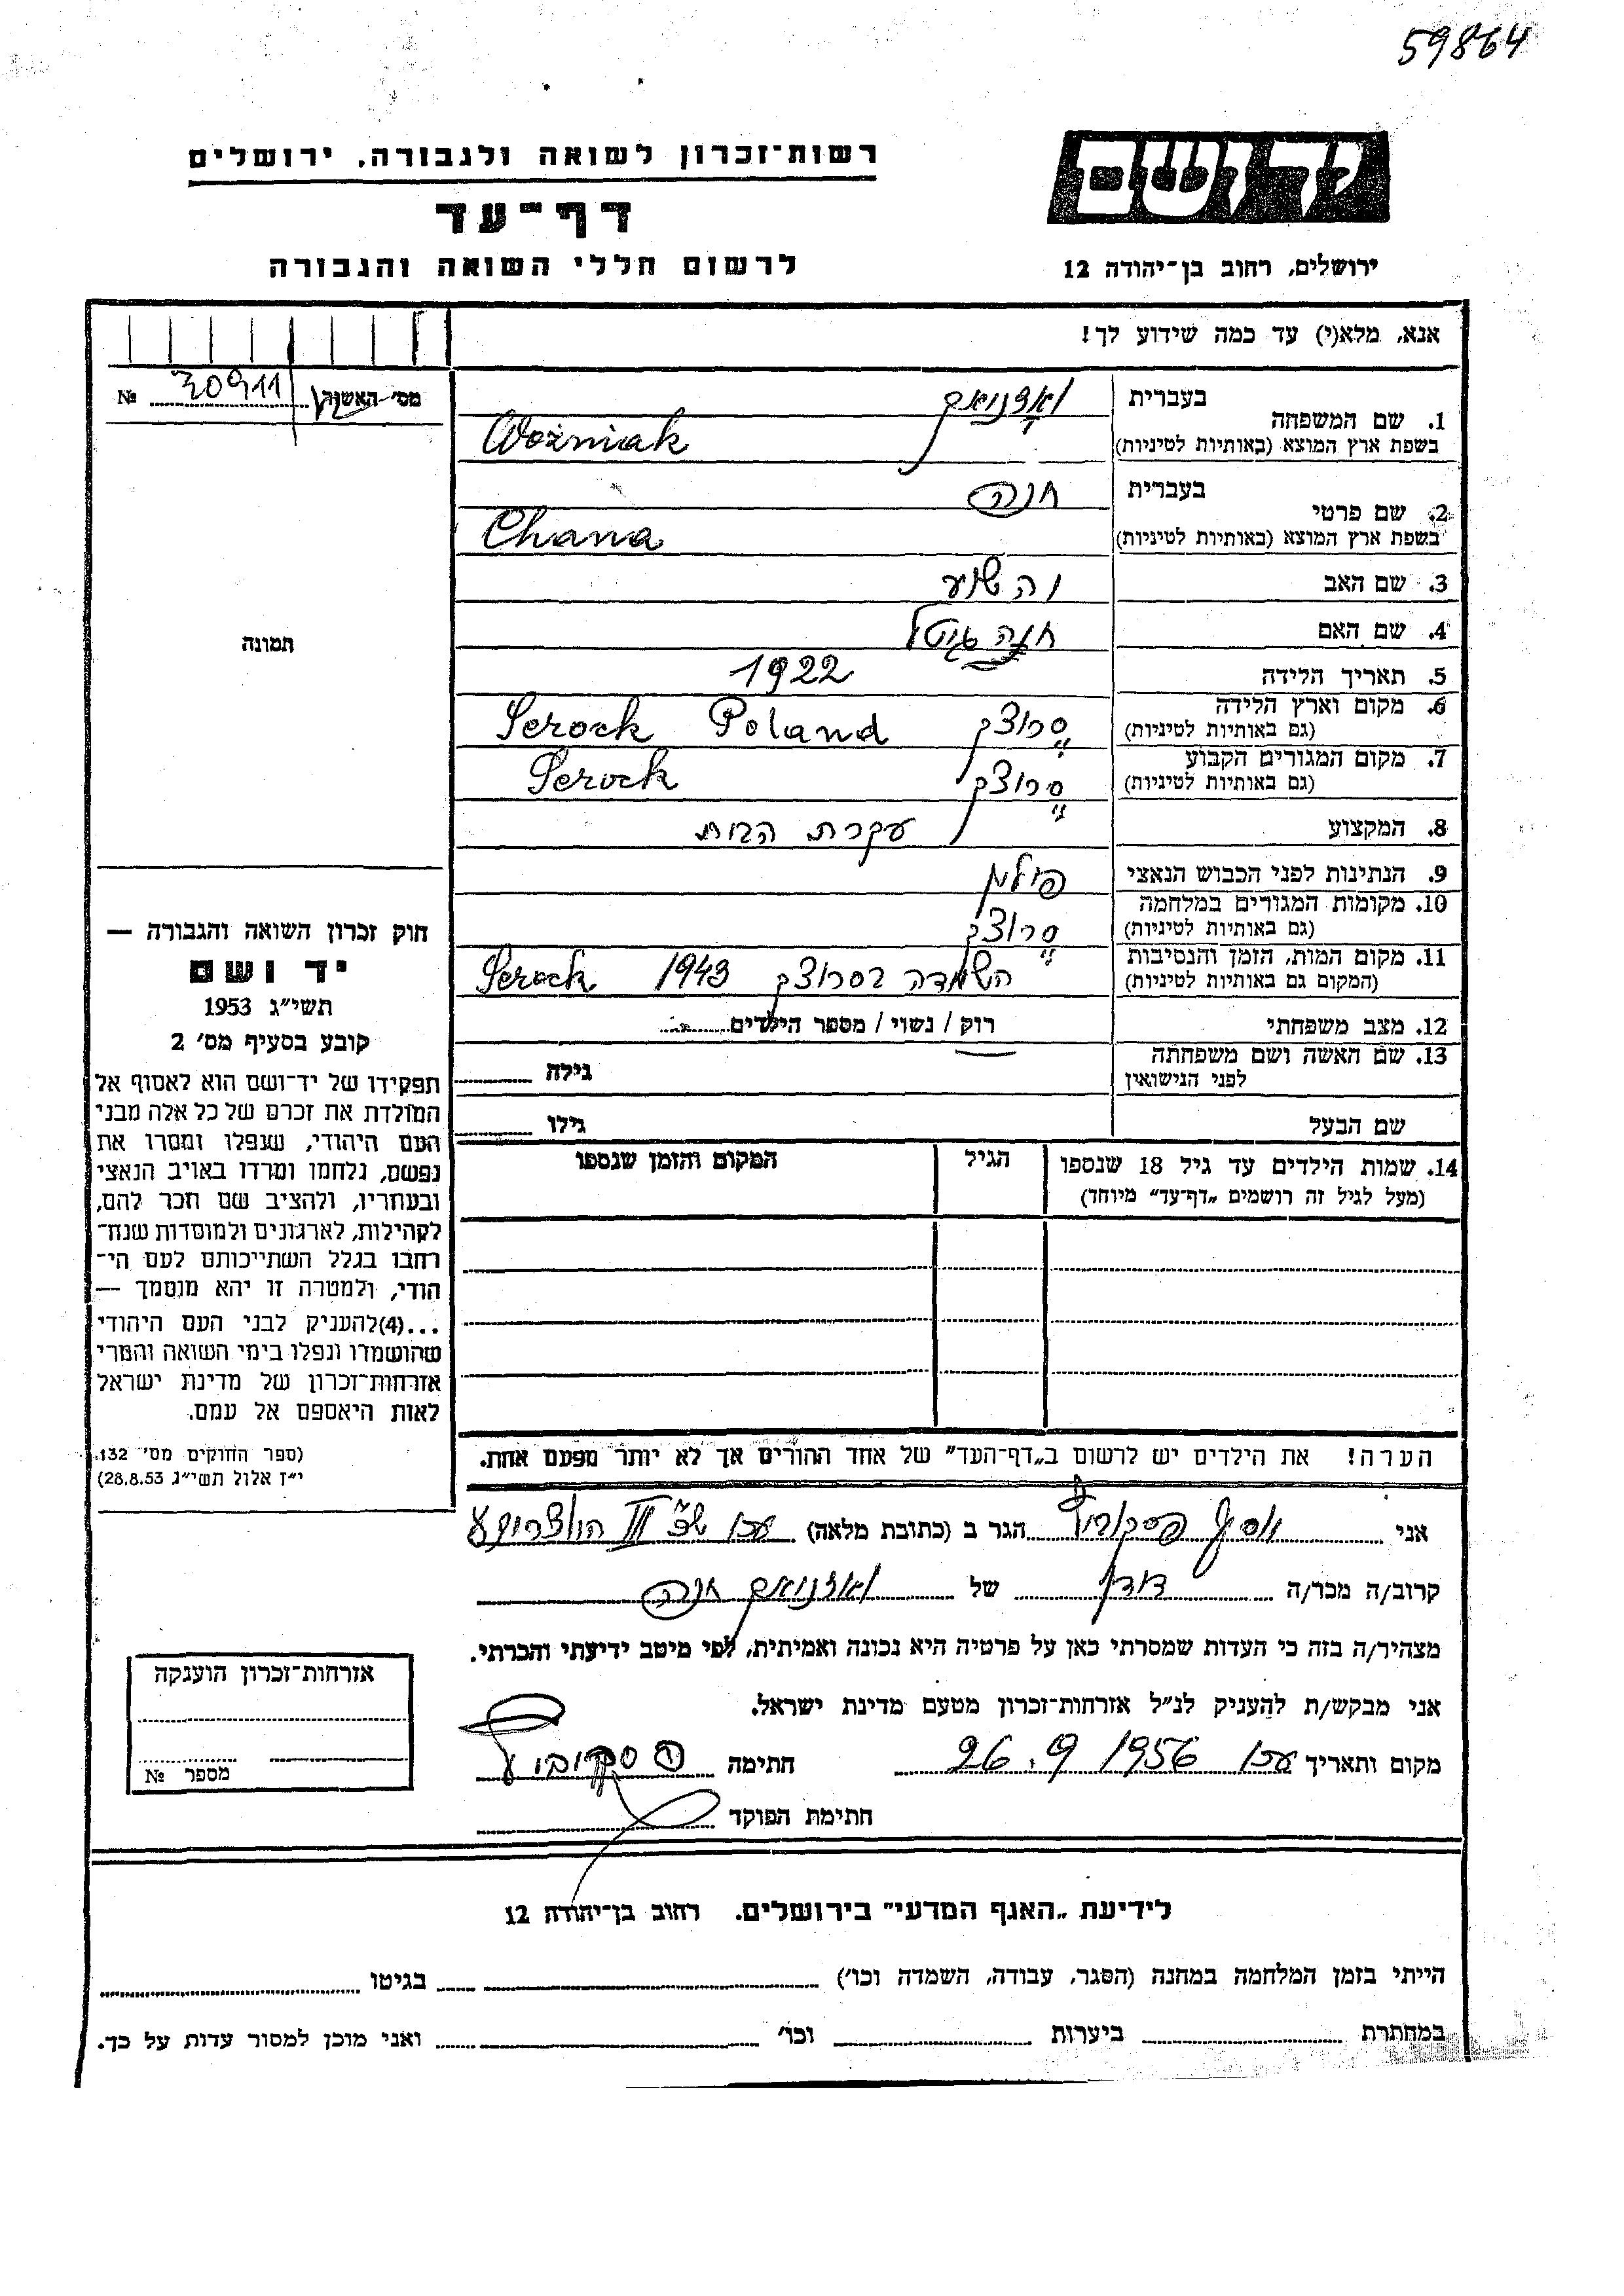 59864
יד ושם
רשות־זכרון לשואה ולגבורה, ירושלים
דף־עד
לרשום חללי השואה והגבורה
ירושלים, רחוב בן־יהודה 12
אנא, מלא(י) עד כמה שידוע לך!
מס׳ האשור № 30911
1. שם המשפחה בעברית ואזניאק
בשפת ארץ המוצא (באותיות לטיניות) Woźniak
2. שם פרטי בעברית חנה
בשפת ארץ המוצא (באותיות לטיניות) Chana
3. שם האב
4. שם האם חנה גיטל
5. תאריך הלידה 1922
6. מקום וארץ הלידה סרוצק Serock Poland
(גם באותיות לטיניות)
7. מקום המגורים הקבוע סרוצק Serock
(גם באותיות לטיניות)
8. המקצוע עקרת הבית
9. הנתינות לפני הכבוש הנאצי פולין
10. מקומות המגורים במלחמה סרוצק
(גם באותיות לטיניות)
11. מקום המות, הזמן והנסיבות השמדה בסרוצק 1943 Serock
(המקום גם באותיות לטיניות)
12. מצב משפחתי רוק / נשוי / מספר הילדים
13. שם האשה ושם משפחתה גילה
לפני הנישואין
שם הבעל גילו
14. שמות הילדים עד גיל 18 שנספו הגיל המקום והזמן שנספו
(מעל לגיל זה רושמים „דף־עד” מיוחד)
הערה! את הילדים יש לרשום ב„דף־העד” של אחד ההורים אך לא יותר מפעם אחת.
תמונה
חוק זכרון השואה והגבורה —
יד ושם
תשי״ג 1953
קובע בסעיף מס׳ 2
תפקידו של יד־ושם הוא לאסוף אל
המולדת את זכרם של כל אלה מבני
העם היהודי, שנפלו ומסרו את
נפשם, נלחמו ומרדו באויב הנאצי
ובעוזריו, ולהציב שם וזכר להם,
לקהילות, לארגונים ולמוסדות שנח־
רבו בגלל השתייכותם לעם הי־
הודי, ולמטרה זו יהא מוסמך —
...(4) להעניק לבני העם היהודי
שהושמדו ונפלו בימי השואה והמרי
אזרחות־זכרון של מדינת ישראל
לאות היאספם אל עמם.
(ספר החוקים מס׳ 132.
י״ז אלול תשי״ג 28.8.53)
אני יוסף הגר ב (כתובת מלאה) עכו
קרוב/ה מכר/ה דודן של ואזניאק חנה
מצהיר/ה בזה כי העדות שמסרתי כאן על פרטיה היא נכונה ואמיתית, לפי מיטב ידיעתי והכרתי.
אני מבקש/ת להעניק לנ״ל אזרחות־זכרון מטעם מדינת ישראל.
מקום ותאריך עכו 26.9 1956 חתימה
חתימת הפוקד
אזרחות־זכרון הוענקה
מספר №
לידיעת „האגף המדעי” בירושלים. רחוב בן־יהודה 12
הייתי בזמן המלחמה במחנה (הסגר, עבודה, השמדה וכו׳) בגיטו
במחתרת ביערות וכו׳ ואני מוכן למסור עדות על כך.